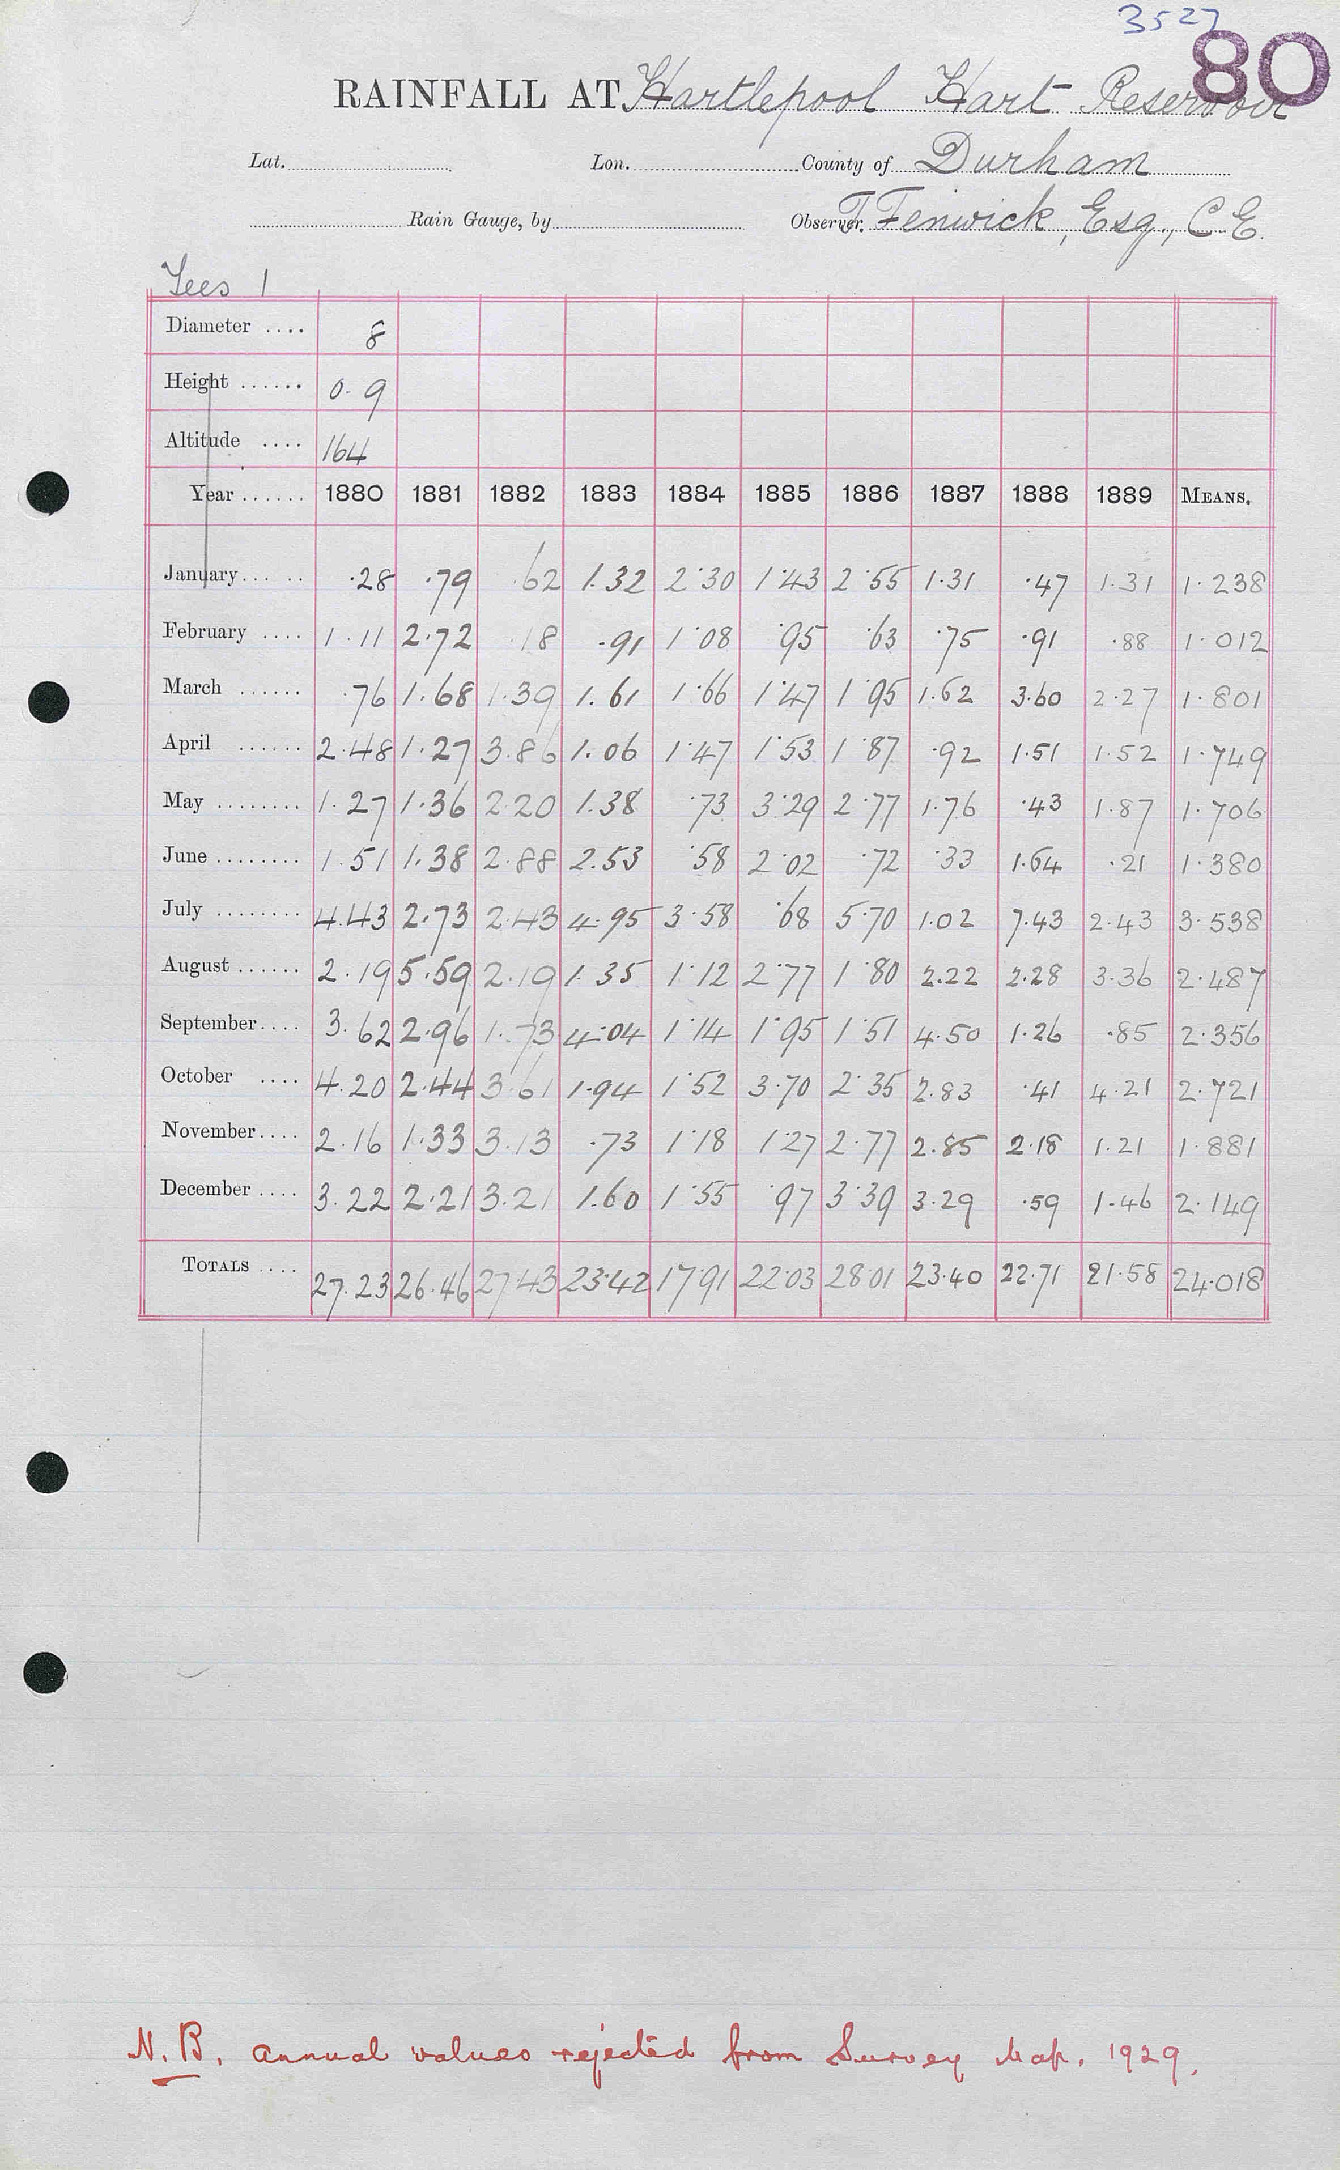 3527
80
RAINFALL AT Hartlepool Hart Reservoir
Lat. Lon. County of Durham
Rain Gauge, by Observer, T Fenwick, Esq., C.E.
Tees 1
Diameter .... 8
Height ...... 0.9
Altitude .... 164
Year ...... 1880 1881 1882 1883 1884 1885 1886 1887 1888 1889 MEANS.
January ...... .28 .79 .62 1.32 2.30 1.43 2.55 1.31 .47 1.31 1.238
February .... 1.11 2.72 .18 .91 1.08 .95 .63 .75 .91 .88 1.012
March ...... .76 1.68 1.39 1.61 1.66 1.47 1.95 1.62 3.60 2.27 1.801
April ...... 2.48 1.27 3.86 1.06 1.47 1.53 1.87 .92 1.51 1.52 1.749
May ........ 1.27 1.36 2.20 1.38 .73 3.29 2.77 1.76 .43 1.87 1.706
June ........ 1.51 1.38 2.88 2.53 .58 2.02 .72 .33 1.64 .21 1.380
July ........ 4.43 2.73 2.43 4.95 3.58 .68 5.70 1.02 7.43 2.43 3.538
August ...... 2.19 5.59 2.19 1.35 1.12 2.77 1.80 2.22 2.28 3.36 2.487
September .... 3.62 2.96 1.73 4.04 1.14 1.95 1.51 4.50 1.26 .85 2.356
October .... 4.20 2.44 3.61 1.94 1.52 3.70 2.35 2.83 .41 4.21 2.721
November .... 2.16 1.33 3.13 .73 1.18 1.27 2.77 2.85 2.18 1.21 1.881
December .... 3.22 2.21 3.21 1.60 1.55 .97 3.39 3.29 .59 1.46 2.149
TOTALS .... 27.23 26.46 27.43 23.42 17.91 22.03 28.01 23.40 22.71 21.58 24.018
N.B. annual values rejected from Survey Map. 1929.